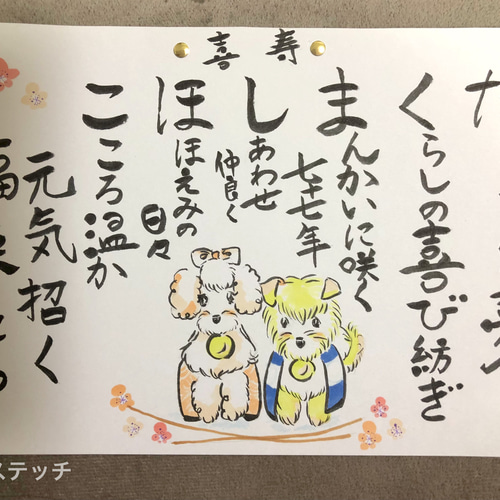 喜寿
くらしの喜び紡ぎ
まんかいに咲く
七十七年
しあわせ
仲良く
ほほえみの
日々
こころ温か
元気招く
ステッチ